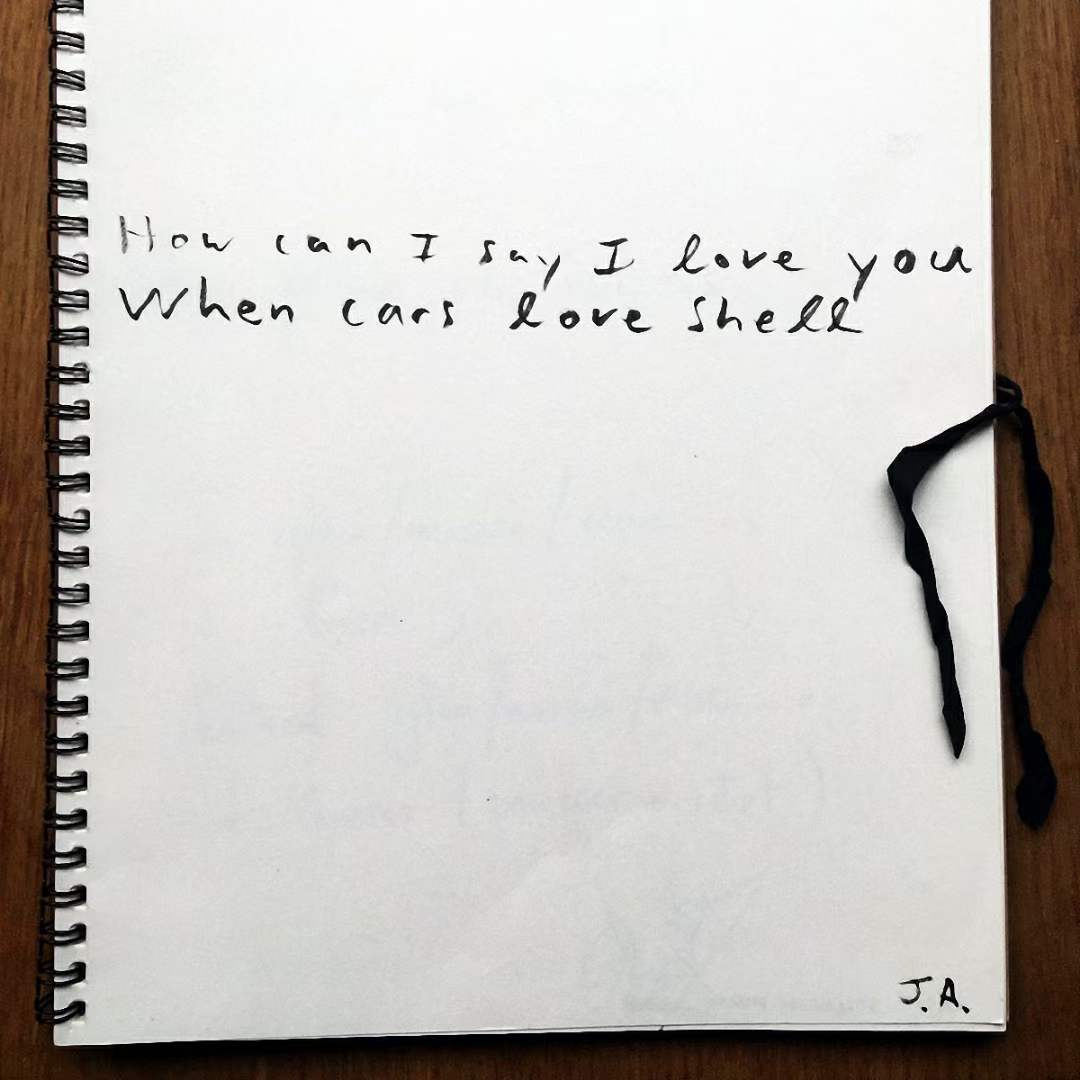 How can I say I love you
When cars love Shell
J.A.